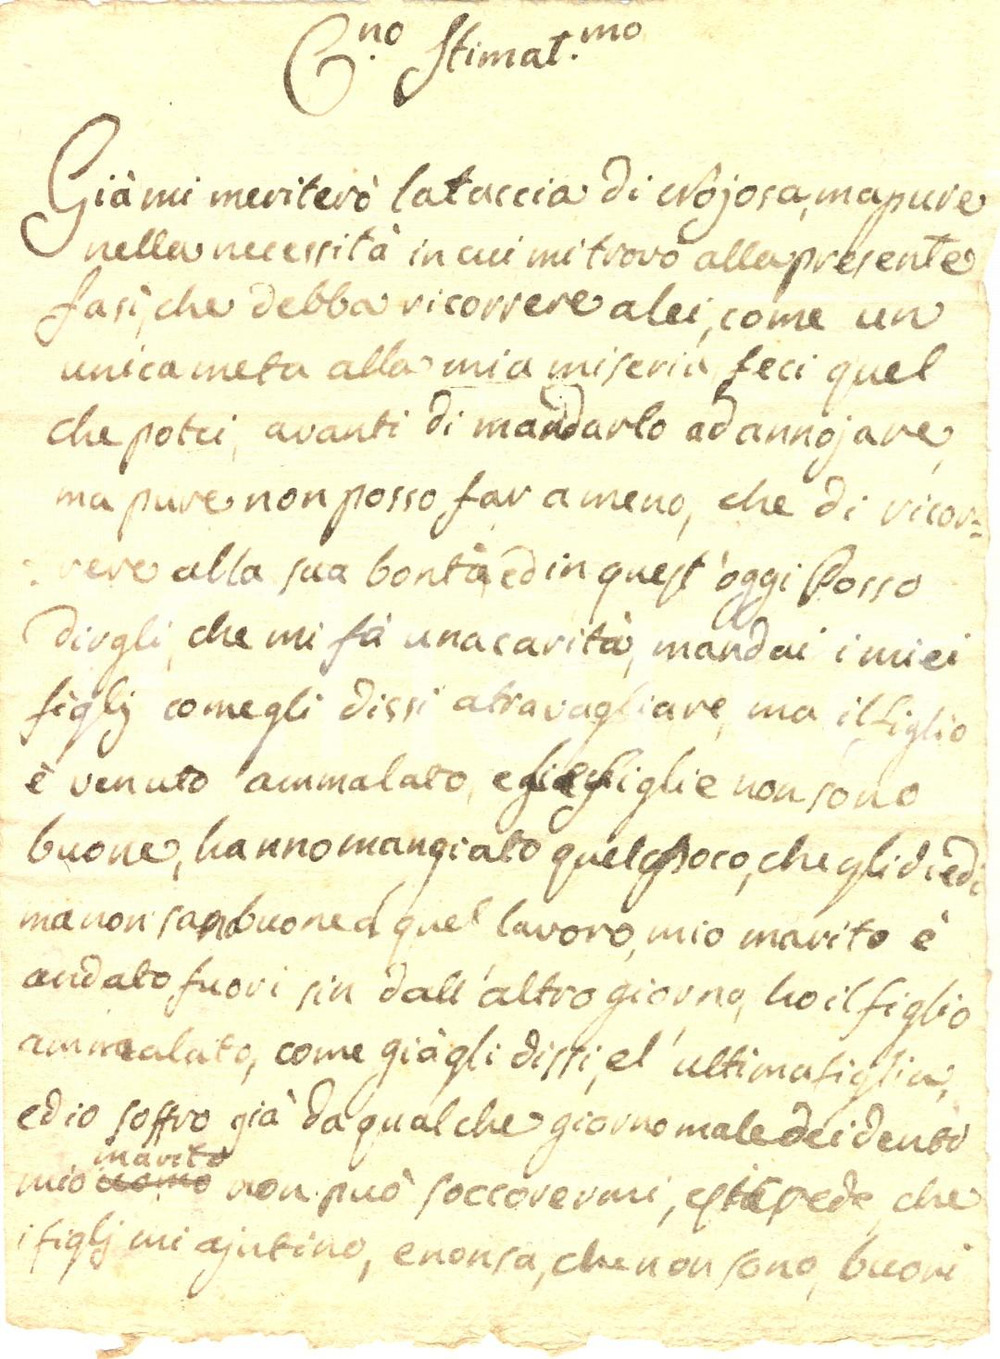 C.no Stimat.mo
Già mi meriterò la taccia di nojosa, ma pure
nella necessità in cui mi trovo alla presente
fa si, che debba ricorrere a lei, come un
unica meta alla mia miseria, feci quel
che potei, avanti di mandarlo ad annojare,
ma pure non posso far a meno, che di ricor=
=rere alla sua bontà, ed in quest'oggi Posso
dirgli, che mi fà una carità, mandai i miei
figlj come gli dissi a travagliare, ma il figlio
è venuto ammalato, e figlie non sono
buone, hanno mangiato quel poco, che gli diedi
ma non son buone a quel lavoro, mio marito è
andato fuori sin dall'altro giorno, ho il figlio
ammalato, come già gli dissi, e l'ultima figlia,
ed io soffro già da qualche giorno male dei denti
mio uomo marito non può soccorermi, crede, che
i figlj mi ajutino, e non sa, che non sono buoni